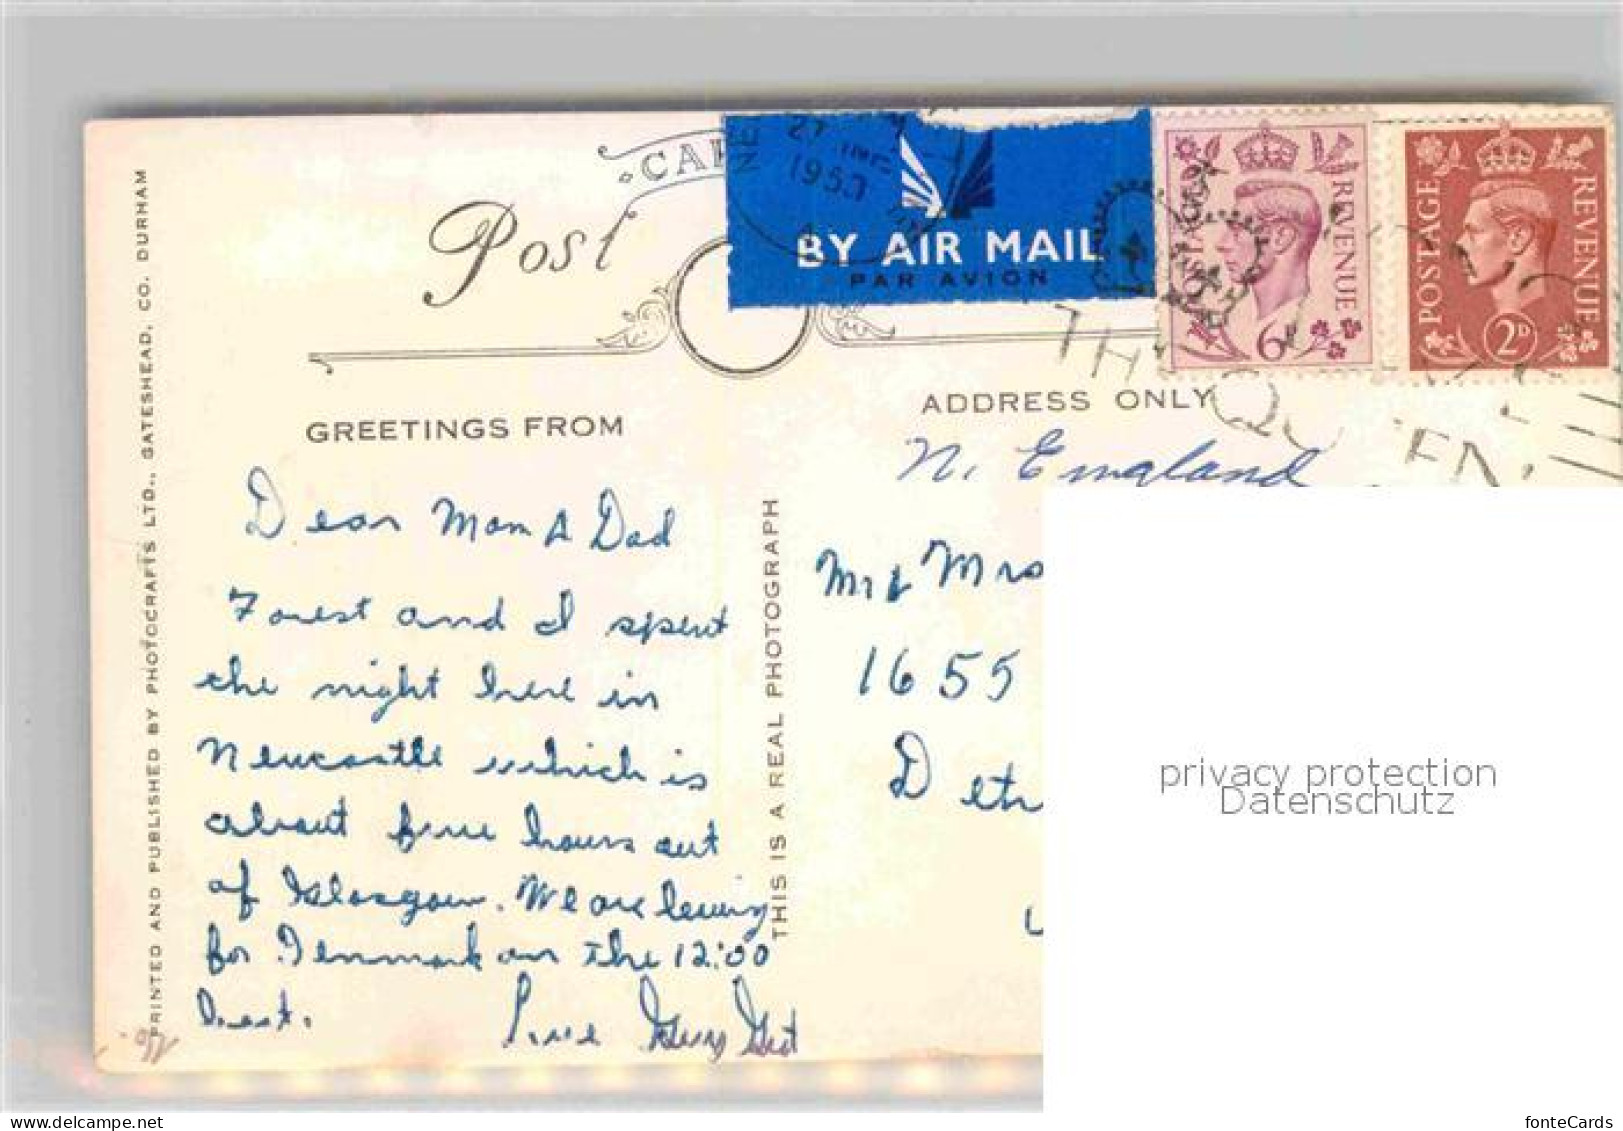 CAR
Post
27 JNE
1953
NE
BY AIR MAIL
PAR AVION
POSTAGE REVENUE
6D
POSTAGE REVENUE
2D
THE QUEEN
GREETINGS FROM
ADDRESS ONLY
N. England
Dear Mom & Dad
Forest and I spent
the night here in
Newcastle which is
about five hours out
of Glasgow. We are leaving
for Denmark on the 12:00
boat.
Love
Mr & Mrs
1655
Detr
THIS IS A REAL PHOTOGRAPH
PRINTED AND PUBLISHED BY PHOTOCRAFTS LTD., GATESHEAD, CO. DURHAM
privacy protection
Datenschutz
www.delcampe.net
fonteCards